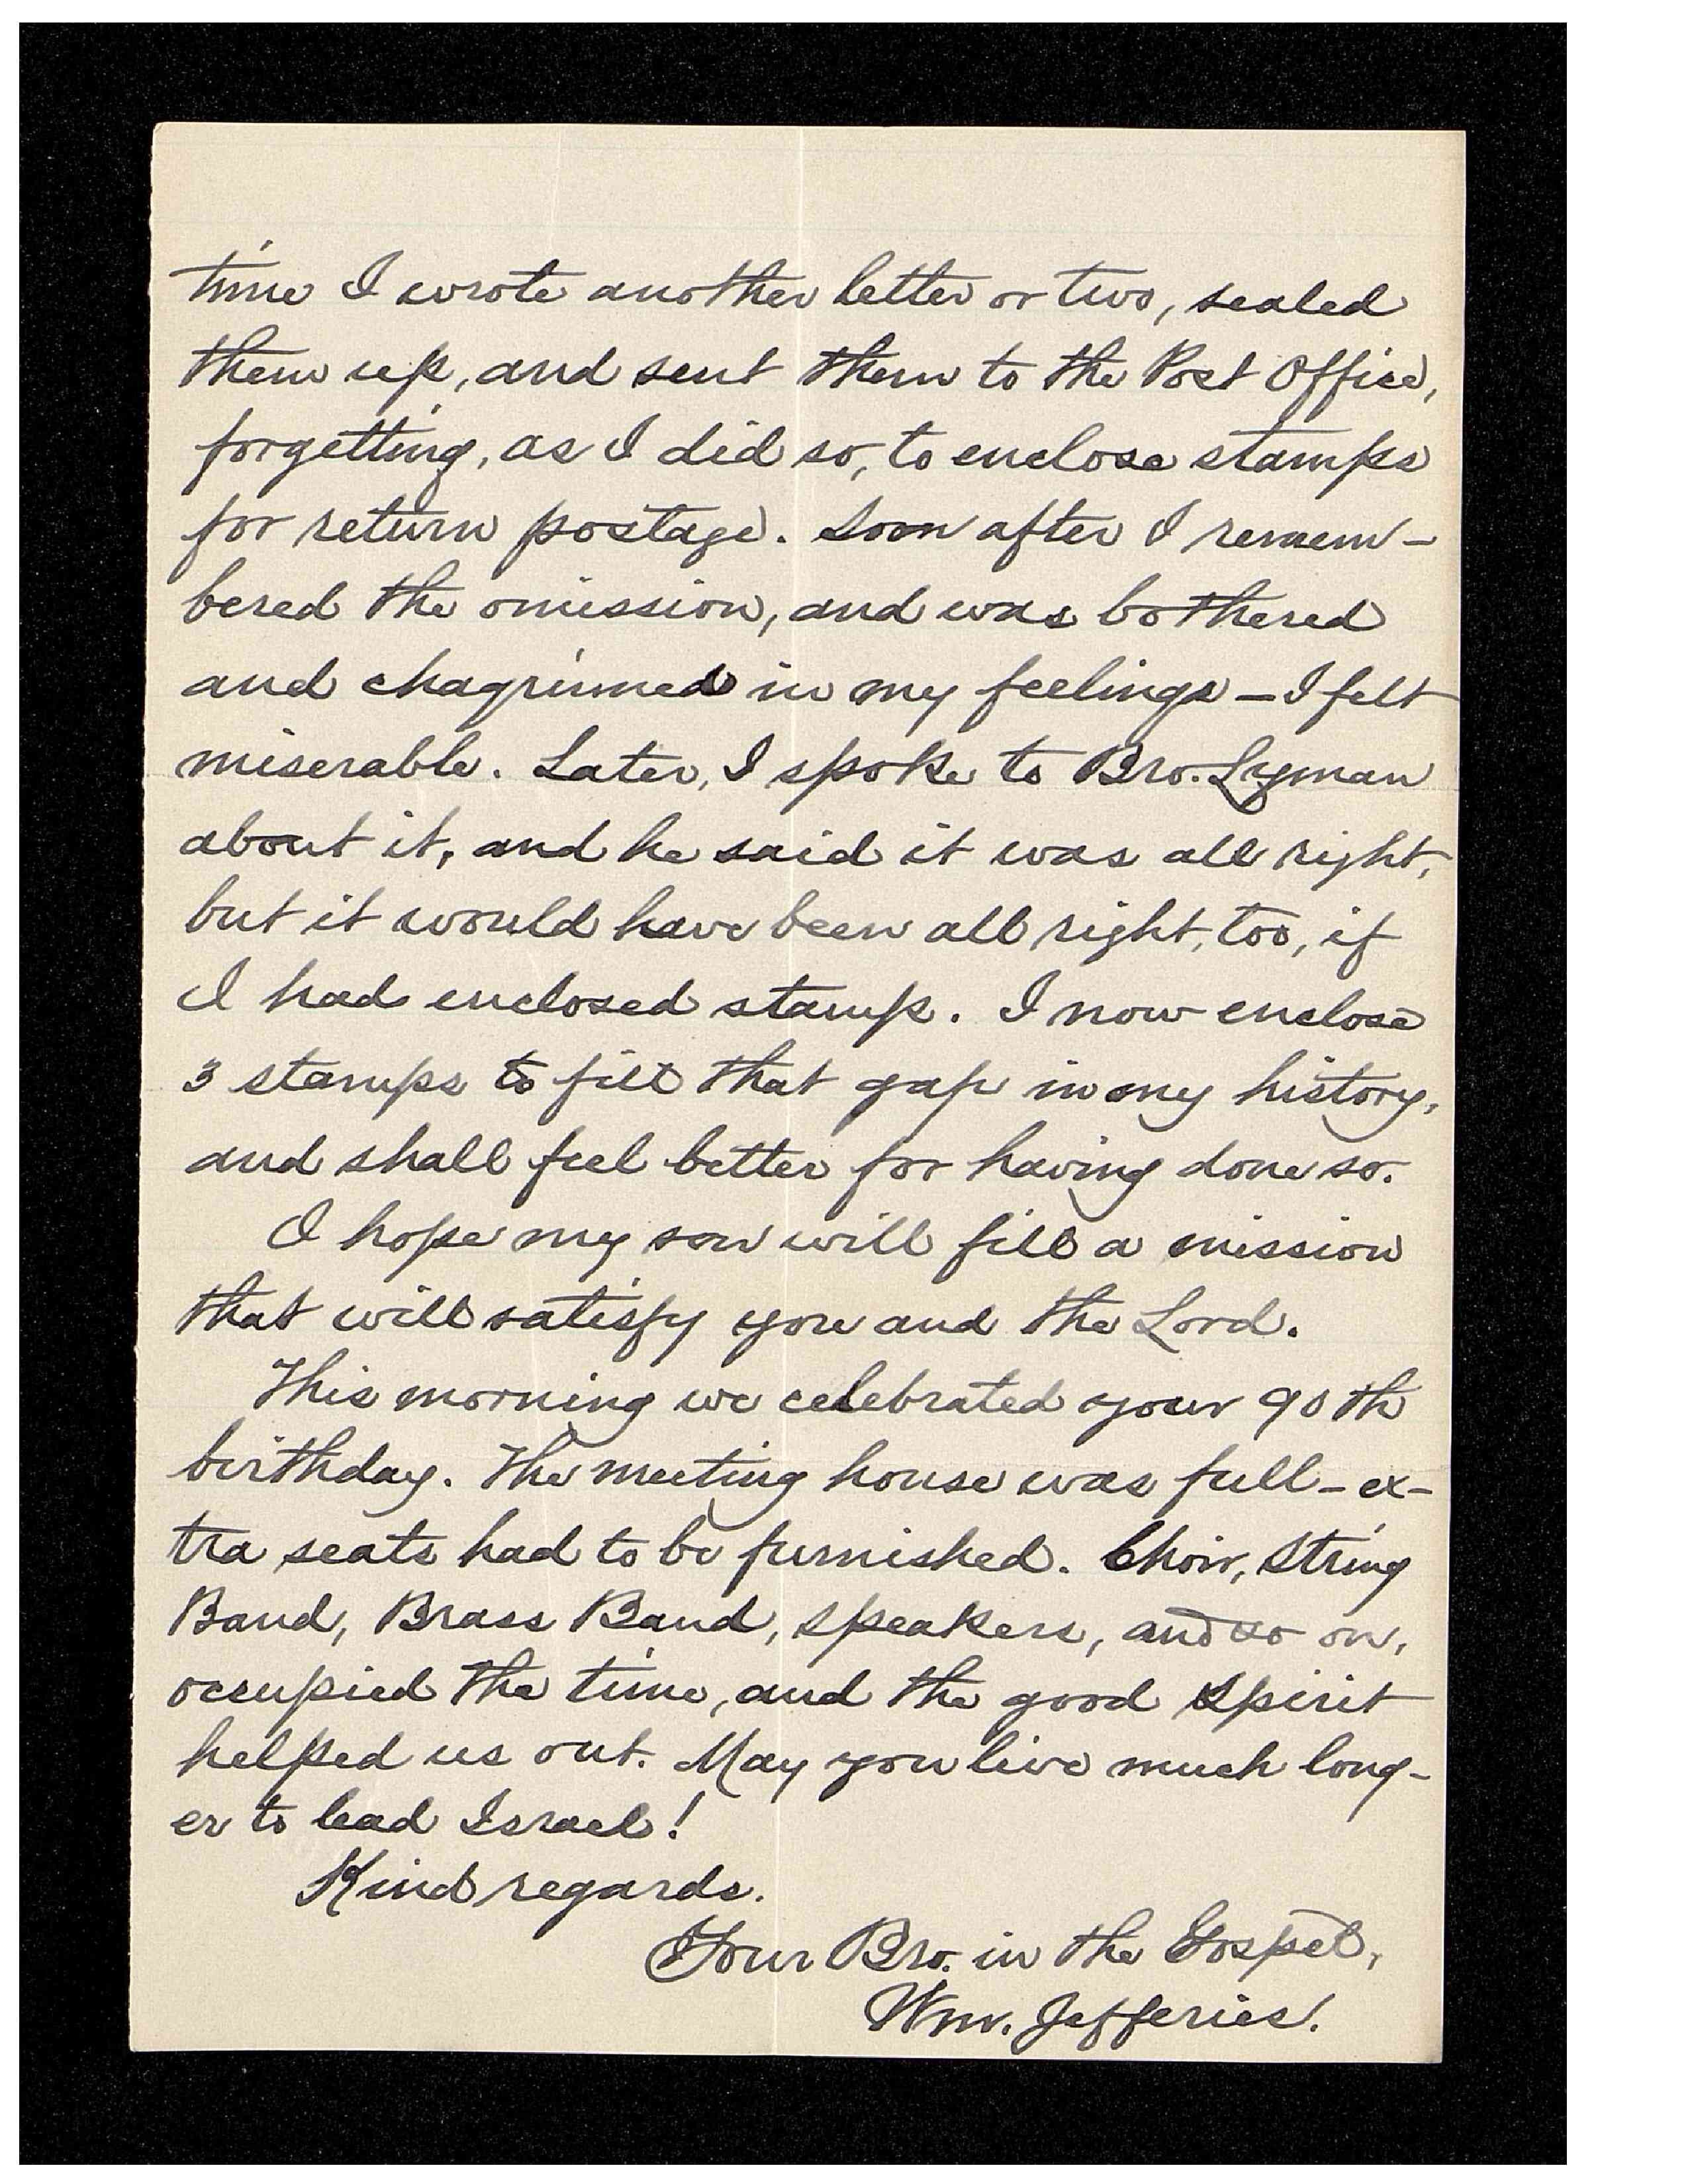 time I wrote another letter or two, sealed
them up, and sent them to the Post Office,
forgetting, as I did so, to enclose stamps
for return postage. Soon after I remem-
bered the omission, and was bothered
and chagrinned in my feelings – I felt
miserable. Later, I spoke to Bro. Lyman
about it, and he said it was all right,
but it would have been all right, too, if
I had enclosed stamp. I now enclose
3 stamps to fill that gap in my history,
and shall feel better for having done so.
I hope my son will fill a mission
that will satisfy you and the Lord.
This morning we celebrated your 90th
birthday. The meeting house was full – ex-
tra seats had to be furnished. Choir, String
Band, Brass Band, speakers, and so on,
occupied the time, and the good Spirit
helped us out. May you live much long-
er to lead Israel!
Kind regards.
Your Bro. in the Gospel,
Wm. Jefferies.